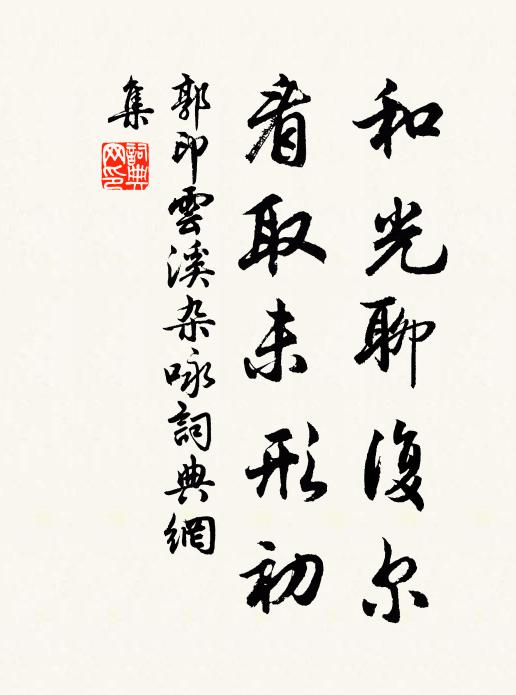 和光聊復尔
看取未形初
郭印雲溪杂咏詞典網
集
詞典
网印